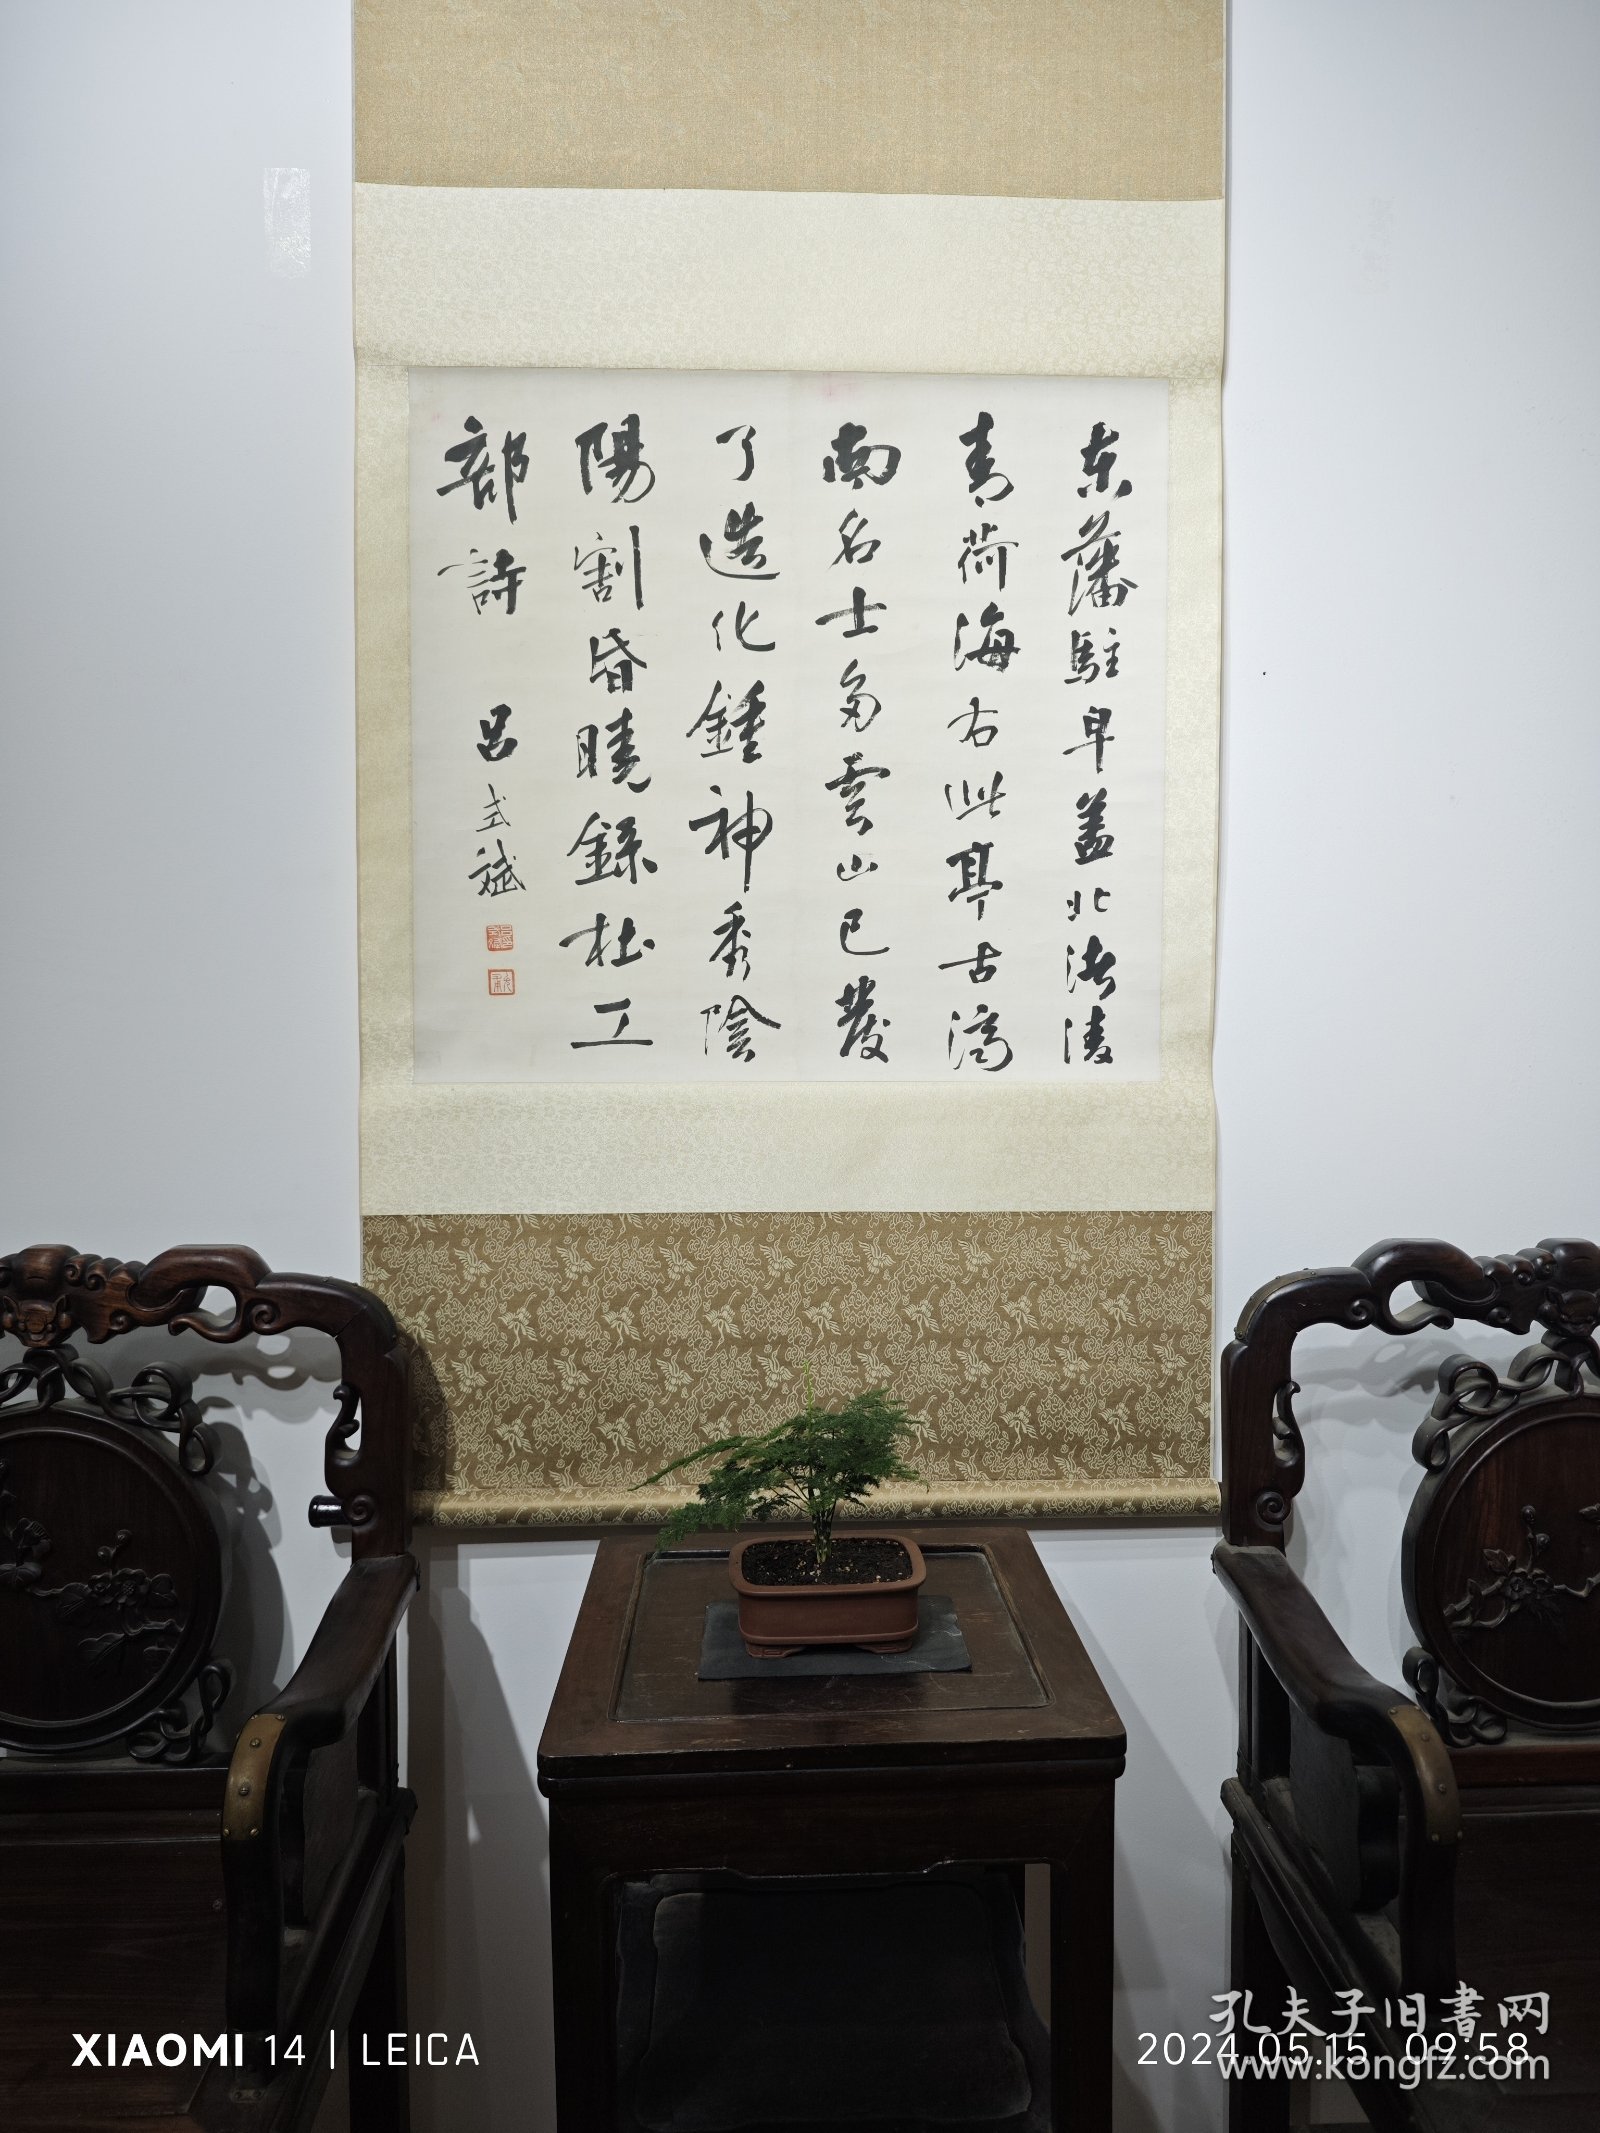 东藩駐皁蓋北渚凌
青荷海右此亭古濟
南名士多雲山已發
了造化鍾神秀陰
陽割昏曉錄杜工
部詩
呂式斌
XIAOMI 14 | LEICA
2024.05.15 09:58
孔夫子旧書网
www.kongfz.com